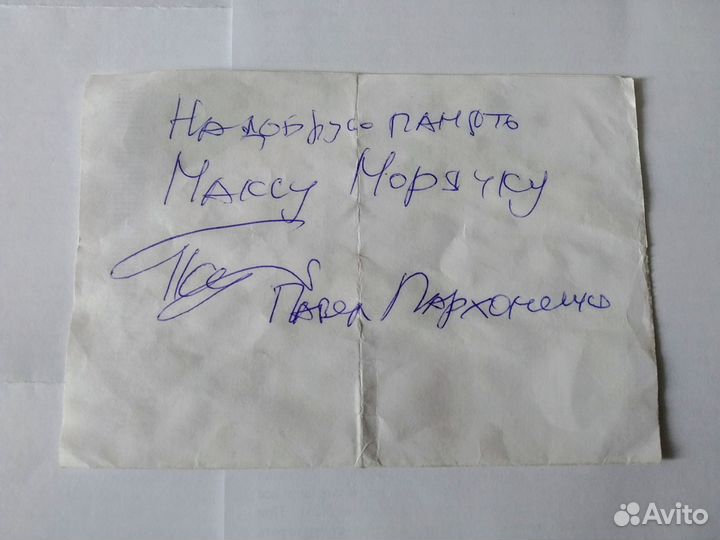 На добрую память
Максу Морячку
Павел Пархоменко
Avito